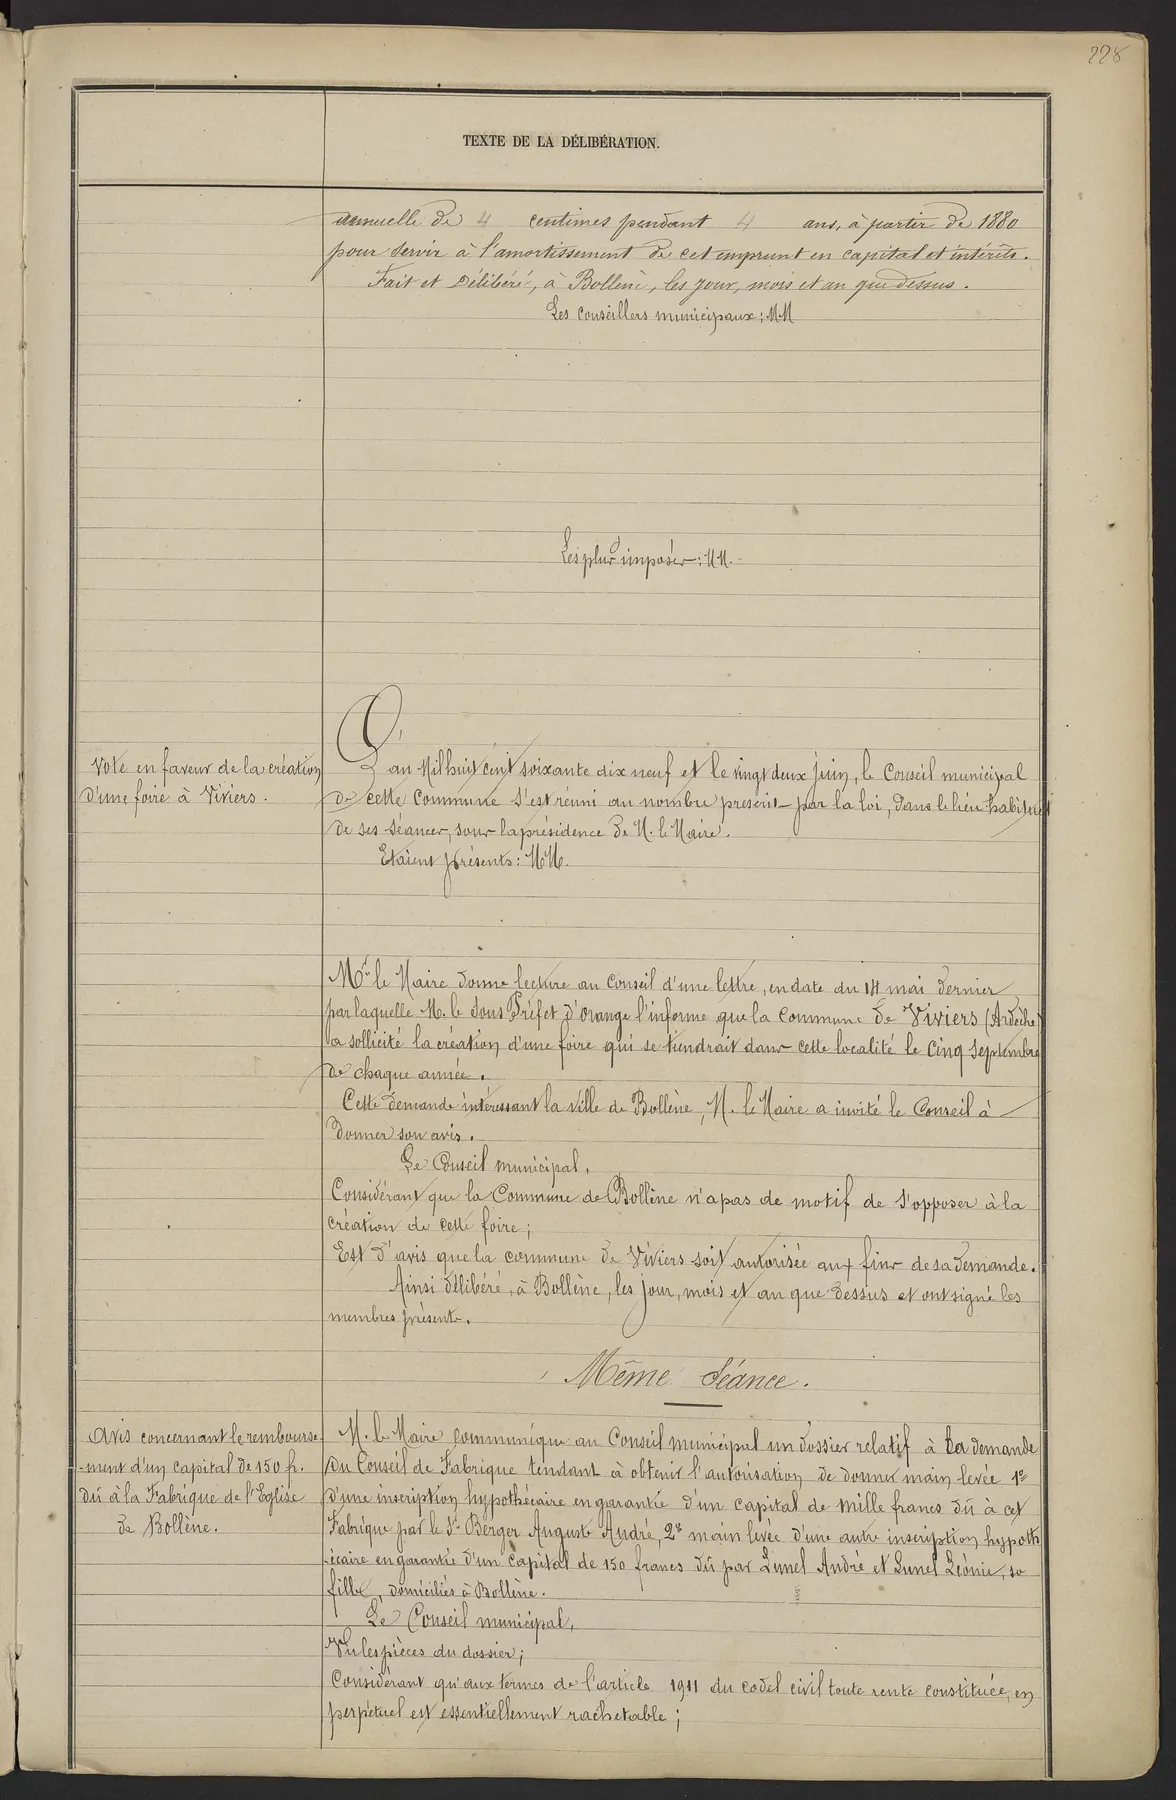 228
TEXTE DE LA DÉLIBÉRATION.
annuelle de 4 centimes pendant 4 ans, à partir de 1880
pour servir à l'amortissement de cet emprunt en capital et intérêts.
Fait et Délibéré, à Bollène, les jour, mois et an que dessus.
Les conseillers municipaux: MM
Les plus imposés: MM.
Vote en faveur de la création
d'une foire à Viviers.
L'an Mil huit cent soixante dix neuf et le vingt deux Juin, le Conseil municipal
de cette Commune s'est réuni au nombre prescrit par la loi, dans le lieu habituel
de ses séances, sous la présidence de M. le Maire.
Etaient présents: MM.
Mr le Maire donne lecture au Conseil d'une lettre, en date du 14 mai dernier
par laquelle M. le Sous Préfet d'Orange l'informe que la Commune de Viviers (Ardèche)
a sollicité la création d'une foire qui se tiendrait dans cette localité le Cinq Septembre
de chaque année.
Cette demande intéressant la ville de Bollène, M. le Maire a invité le Conseil à
donner son avis.
Le Conseil municipal,
Considérant que la Commune de Bollène n'a pas de motif de s'opposer à la
création de cette foire;
Est d'avis que la commune de Viviers soit autorisée aux fins de sa demande.
Ainsi délibéré, à Bollène, les jour, mois et an que dessus et ont signé les
membres présents.
Même Séance.
Avis concernant le rembourse
-ment d'un capital de 150 f.
dû à la Fabrique de l'Eglise
de Bollène.
M. le Maire communique au Conseil municipal un dossier relatif à la demande
du Conseil de Fabrique tendant à obtenir l'autorisation de donner main levée 1°
d'une inscription hypothécaire en garantie d'un capital de mille francs dû à cet
Fabrique par le Sr Berger Auguste André, 2° main levée d'une autre inscription hypoth
-écaire en garantie d'un capital de 150 francs dû par Lunel André et Lunel Léonie, sa
fille, domiciliés à Bollène.
Le Conseil municipal,
Vu les pièces du dossier;
Considérant qu'aux termes de l'article 1911 du codel civil toute rente constituée en
perpétuel est essentiellement rachetable;